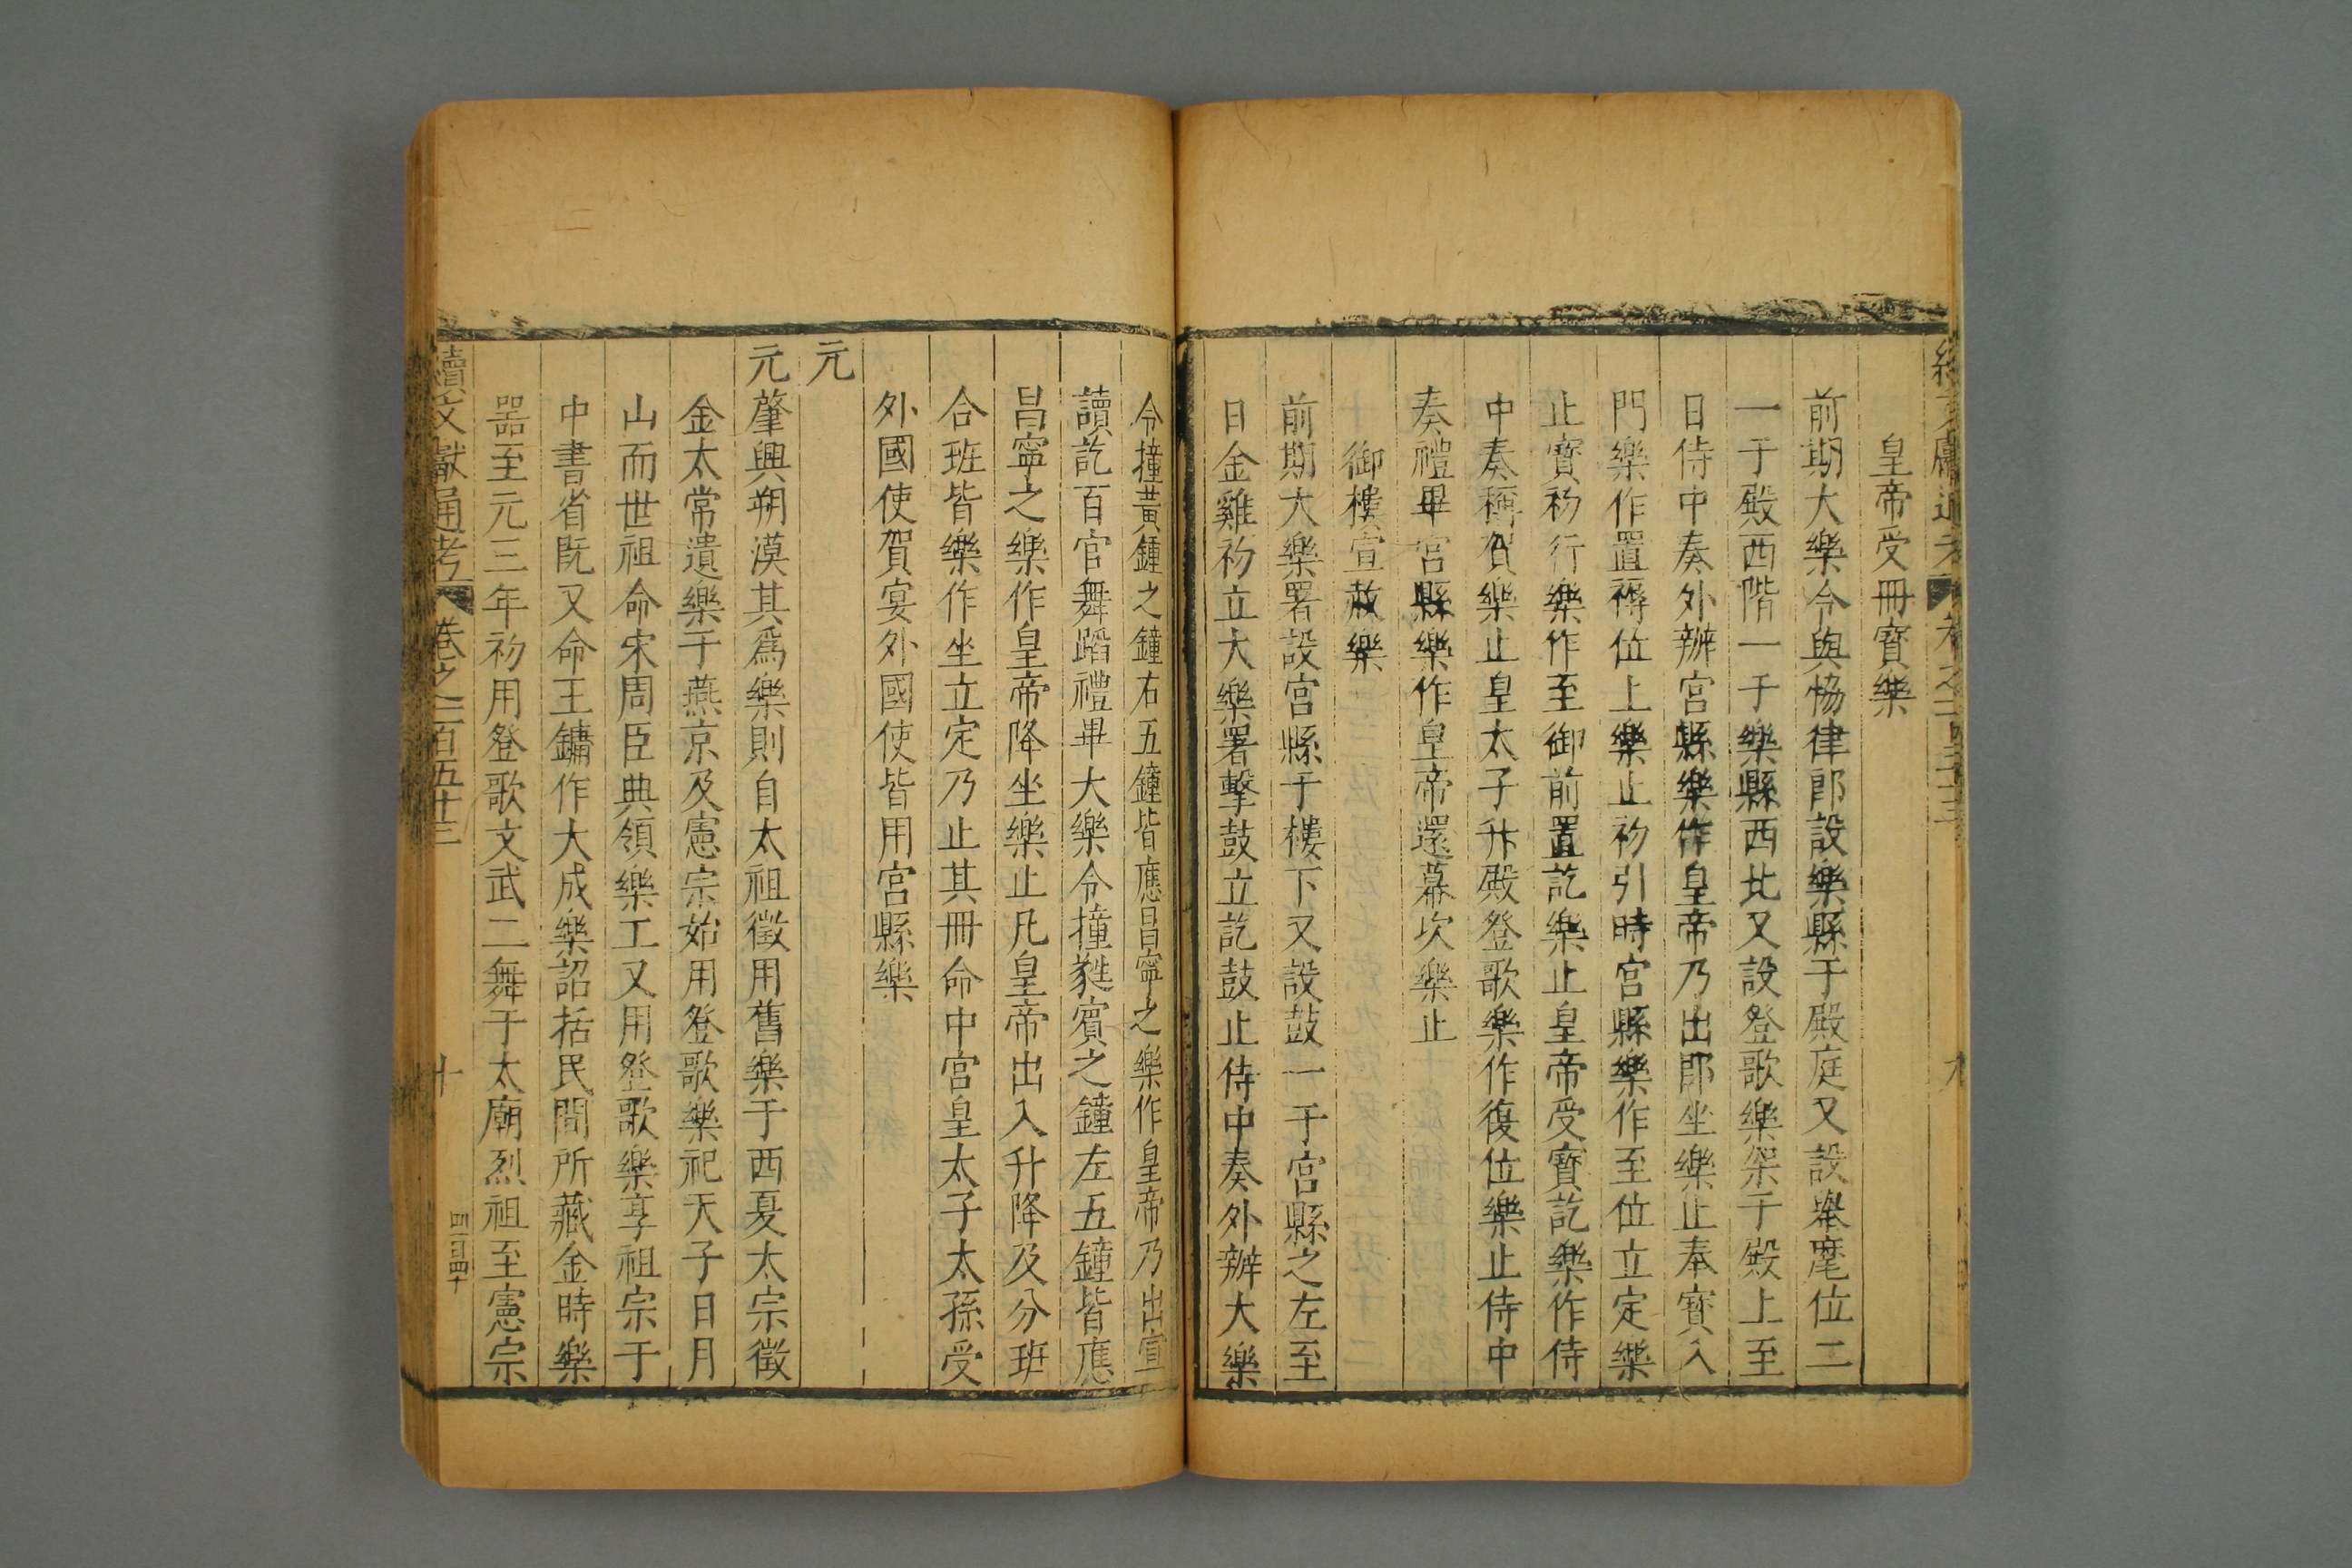 皇帝受冊寶樂
前期大樂令與恊律郎設樂縣于殿庭又設舉麾位二
一于殿西階一于樂縣西北又設登歌樂架于殿上至
日侍中奏外辦宮縣樂作皇帝乃出即坐樂止奉寶入
門樂作置褥位上樂止初引時宮縣樂作至位立定樂
止寶初行樂作至御前置訖樂止皇帝受寶訖樂作侍
中奏稱賀樂止皇太子升殿登歌樂作復位樂止侍中
奏禮畢宮縣樂作皇帝還幕次樂止
御樓宣赦樂
前期大樂署設宮縣于樓下又設鼓一于宮縣之左至
日金雞初立大樂署擊鼓立訖鼓止侍中奏外辦大樂
令撞黃鍾之鐘右五鐘皆應昌寧之樂作皇帝乃出宣
讀訖百官舞蹈禮畢大樂令撞蕤賓之鐘左五鐘皆應
昌寧之樂作皇帝降坐樂止凡皇帝出入升降及分班
合班皆樂作坐立定乃止其冊命中宮皇太子太孫受
外國使賀宴外國使皆用宮縣樂
元
元肇興朔漠其爲樂則自太祖徵用舊樂于西夏太宗徵
金太常遺樂于燕京及憲宗始用登歌樂祀天子日月
山而世祖命宋周臣典領樂工又用登歌樂享祖宗于
中書省既又命王鏞作大成樂詔括民間所藏金時樂
器至元三年初用登歌文武二舞于太廟烈祖至憲宗
續文獻通考 卷之一百五十三 十